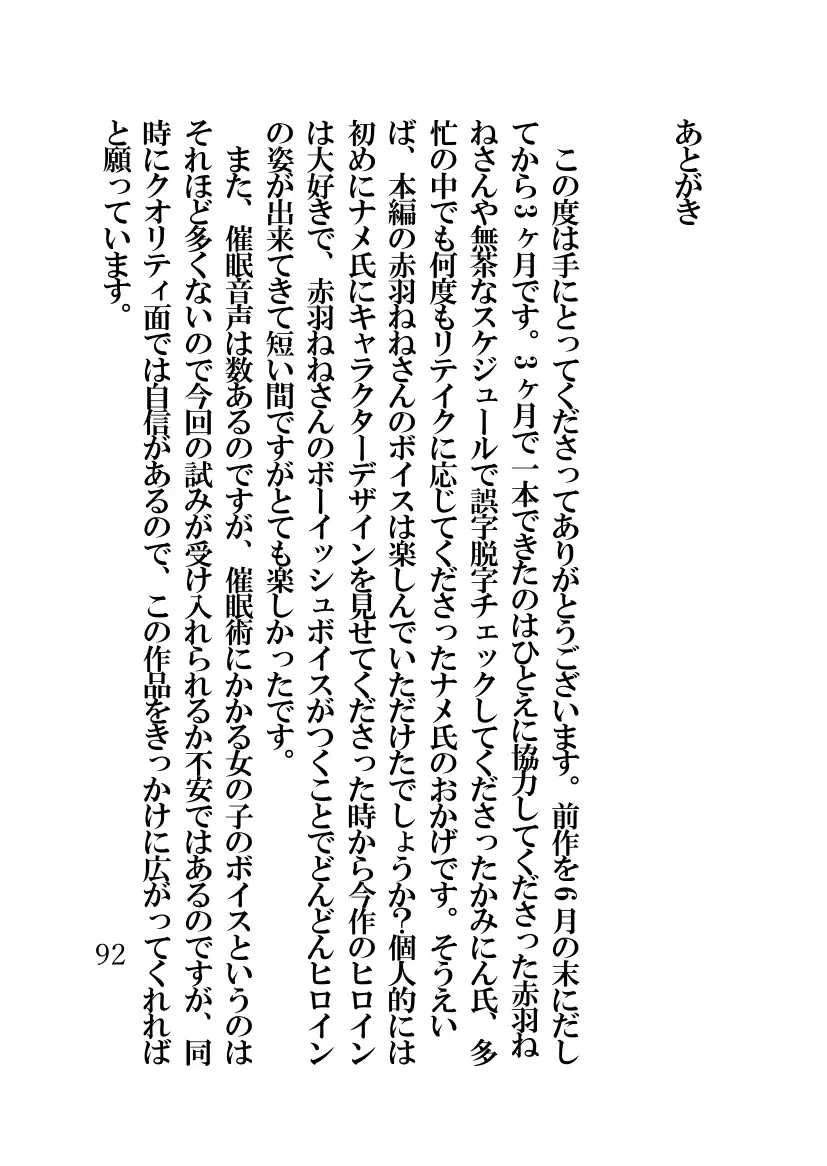 あとがき
この度は手にとってくださってありがとうございます。前作を6月の末にだし
てから3ヶ月です。3ヶ月で一本できたのはひとえに協力してくださった赤羽ね
ねさんや無茶なスケジュールで誤字脱字チェックしてくださったかみにん氏、多
忙の中でも何度もリテイクに応じてくださったナメ氏のおかげです。そうえい
ば、本編の赤羽ねねさんのボイスは楽しんでいただけたでしょうか？個人的には
初めにナメ氏にキャラクターデザインを見せてくださった時から今作のヒロイン
は大好きで、赤羽ねねさんのボーイッシュボイスがつくことでどんどんヒロイン
の姿が出来てきて短い間ですがとても楽しかったです。
また、催眠音声は数あるのですが、催眠術にかかる女の子のボイスというのは
それほど多くないので今回の試みが受け入れられるか不安ではあるのですが、同
時にクオリティ面では自信があるので、この作品をきっかけに広がってくれれば
と願っています。
92